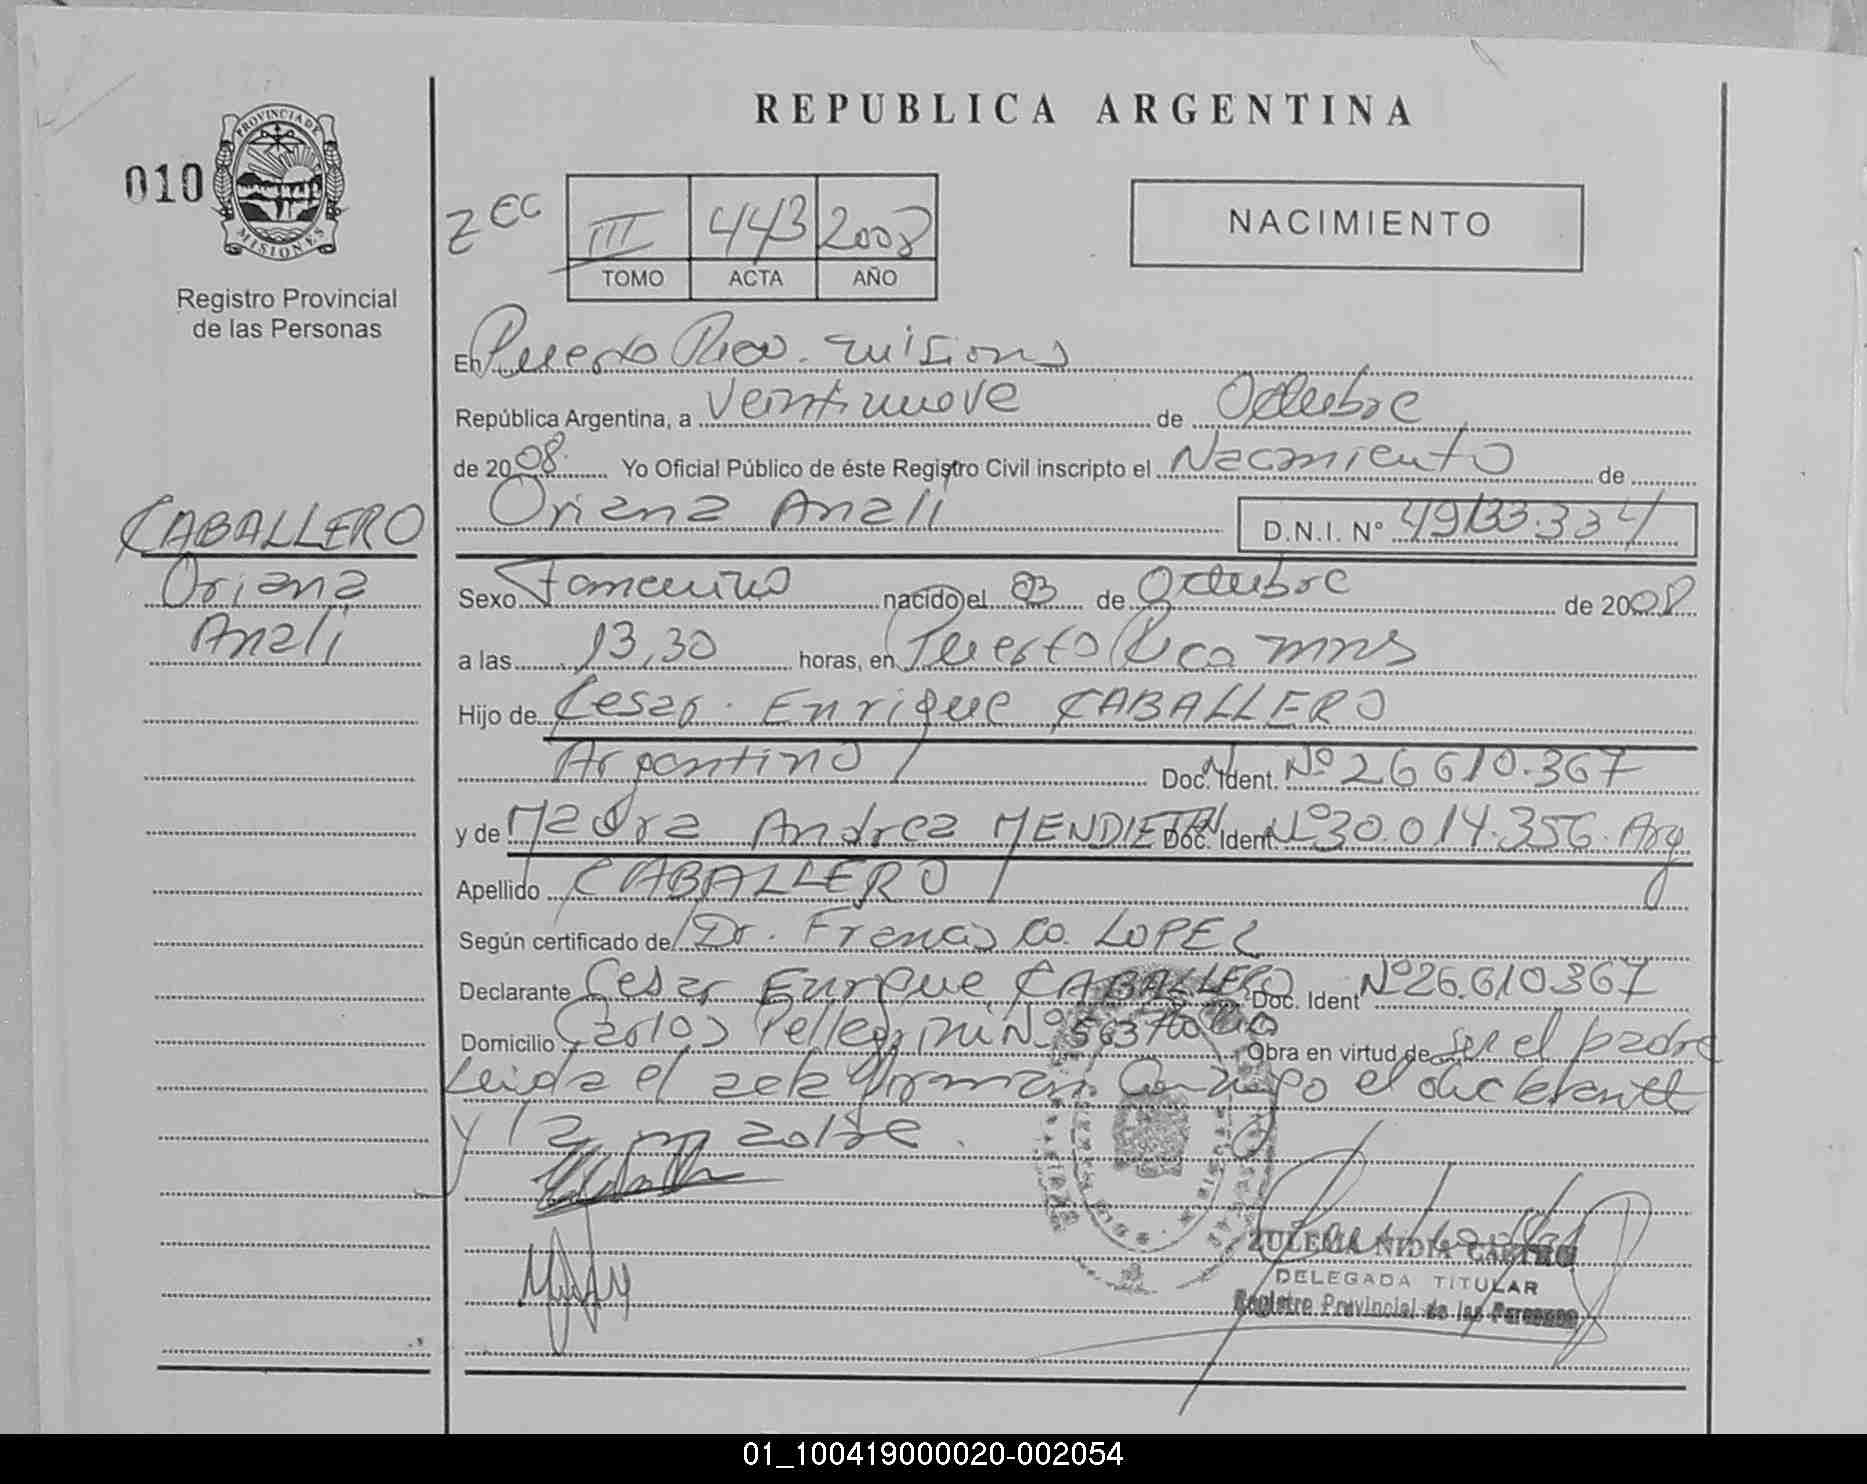 REPUBLICA ARGENTINA
PROVINCIA DE MISIONES
010
Registro Provincial
de las Personas
III 443 2008
TOMO ACTA AÑO
NACIMIENTO
En Puerto Rico. Misiones
República Argentina, a Veintinueve de Octubre
de 2008. Yo Oficial Público de éste Registro Civil inscripto el Nacimiento de
Oriana Anali D.N.I. Nº 49133.334
CABALLERO
Oriana
Anali
Sexo Femenino nacido el 03 de Octubre de 2008
a las 13,30 horas, en Puerto Rico mns
Hijo de Cesar. Enrique CABALLERO
Argentino Doc. Ident. Nº 26610.367
y de Andrea MENDIETA Doc. Ident Nº30.014.356. Arg
Apellido CABALLERO
Según certificado de Dr. Francisco. LOPEZ
Declarante Cesar Enrique CABALLERO Doc. Ident Nº26.610367
Domicilio Carlos Pellegrini Nº 563 Obra en virtud de ser el padre
Leida el acta firman el declarante
y la
ZULEMA NIDIA CASTRO
DELEGADA TITULAR
Registro Provincial de las Personas
01_100419000020-002054